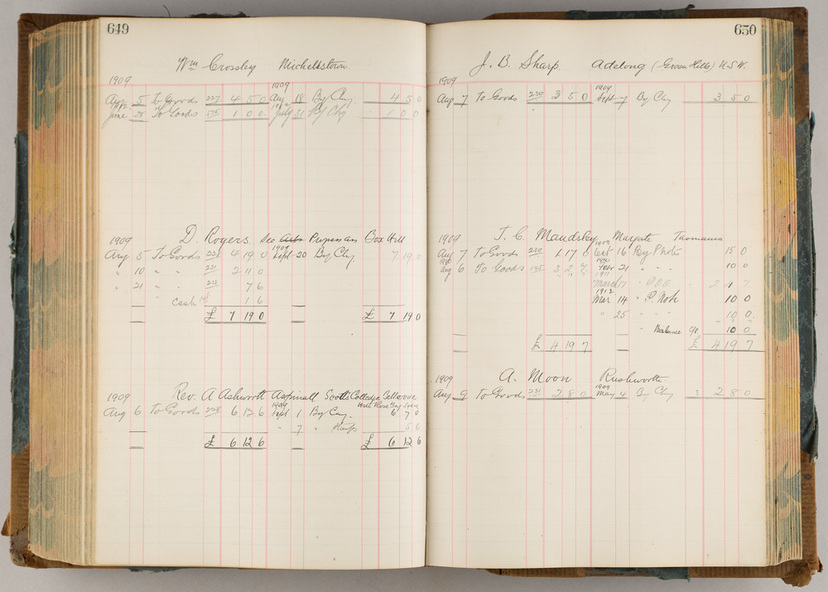 649
Wm Crossley Micheldstown
1909 1909
Aug 5 To Goods 227 4 5 0 Aug 18 By Chq 4 5 0
June 28 To Goods 1 0 0 July 31 By Chq 1 0 0
D. Rogers Box Hill
1909 1909
Aug 5 To Goods 4 19 0 Sept 20 By Chq 7 19 0
" 10 " " 2 11 0
" 21 " " 7 6
" Cash 1 6
£ 7 19 0 £ 7 19 0
Rev. A Ashworth Aspinall Scotts College Bellevue
1909 1909 Hill Rose Bay
Aug 6 To Goods 228 6 12 6 Sept 1 By Chq 6 7 0
" 7 " 5 6
£ 6 12 6 £ 6 12 6
650
J. B. Sharp Adelong (Green Hills) N.S.W.
1909 1909
Aug 7 To Goods 230 3 5 0 Sept 7 By Chq 3 5 0
T. C. Maudsley Margate Tasmania
1909 1909
Aug 7 To Goods 230 1 17 0 Oct 16 By P Note 15 0
Aug 6 To Goods 3 2 7 Feb 21 " " 10 0
1911
March 7 " P.O.O. 2 4 7
1912
Mar 14 " P. Note 10 0
" 25 " 10 0
" Balance 10 0
£ 4 19 7 £ 4 19 7
A. Moon Rushworth
1909 1909
Aug 9 To Goods 231 2 8 0 May 4 By Chq 2 8 0